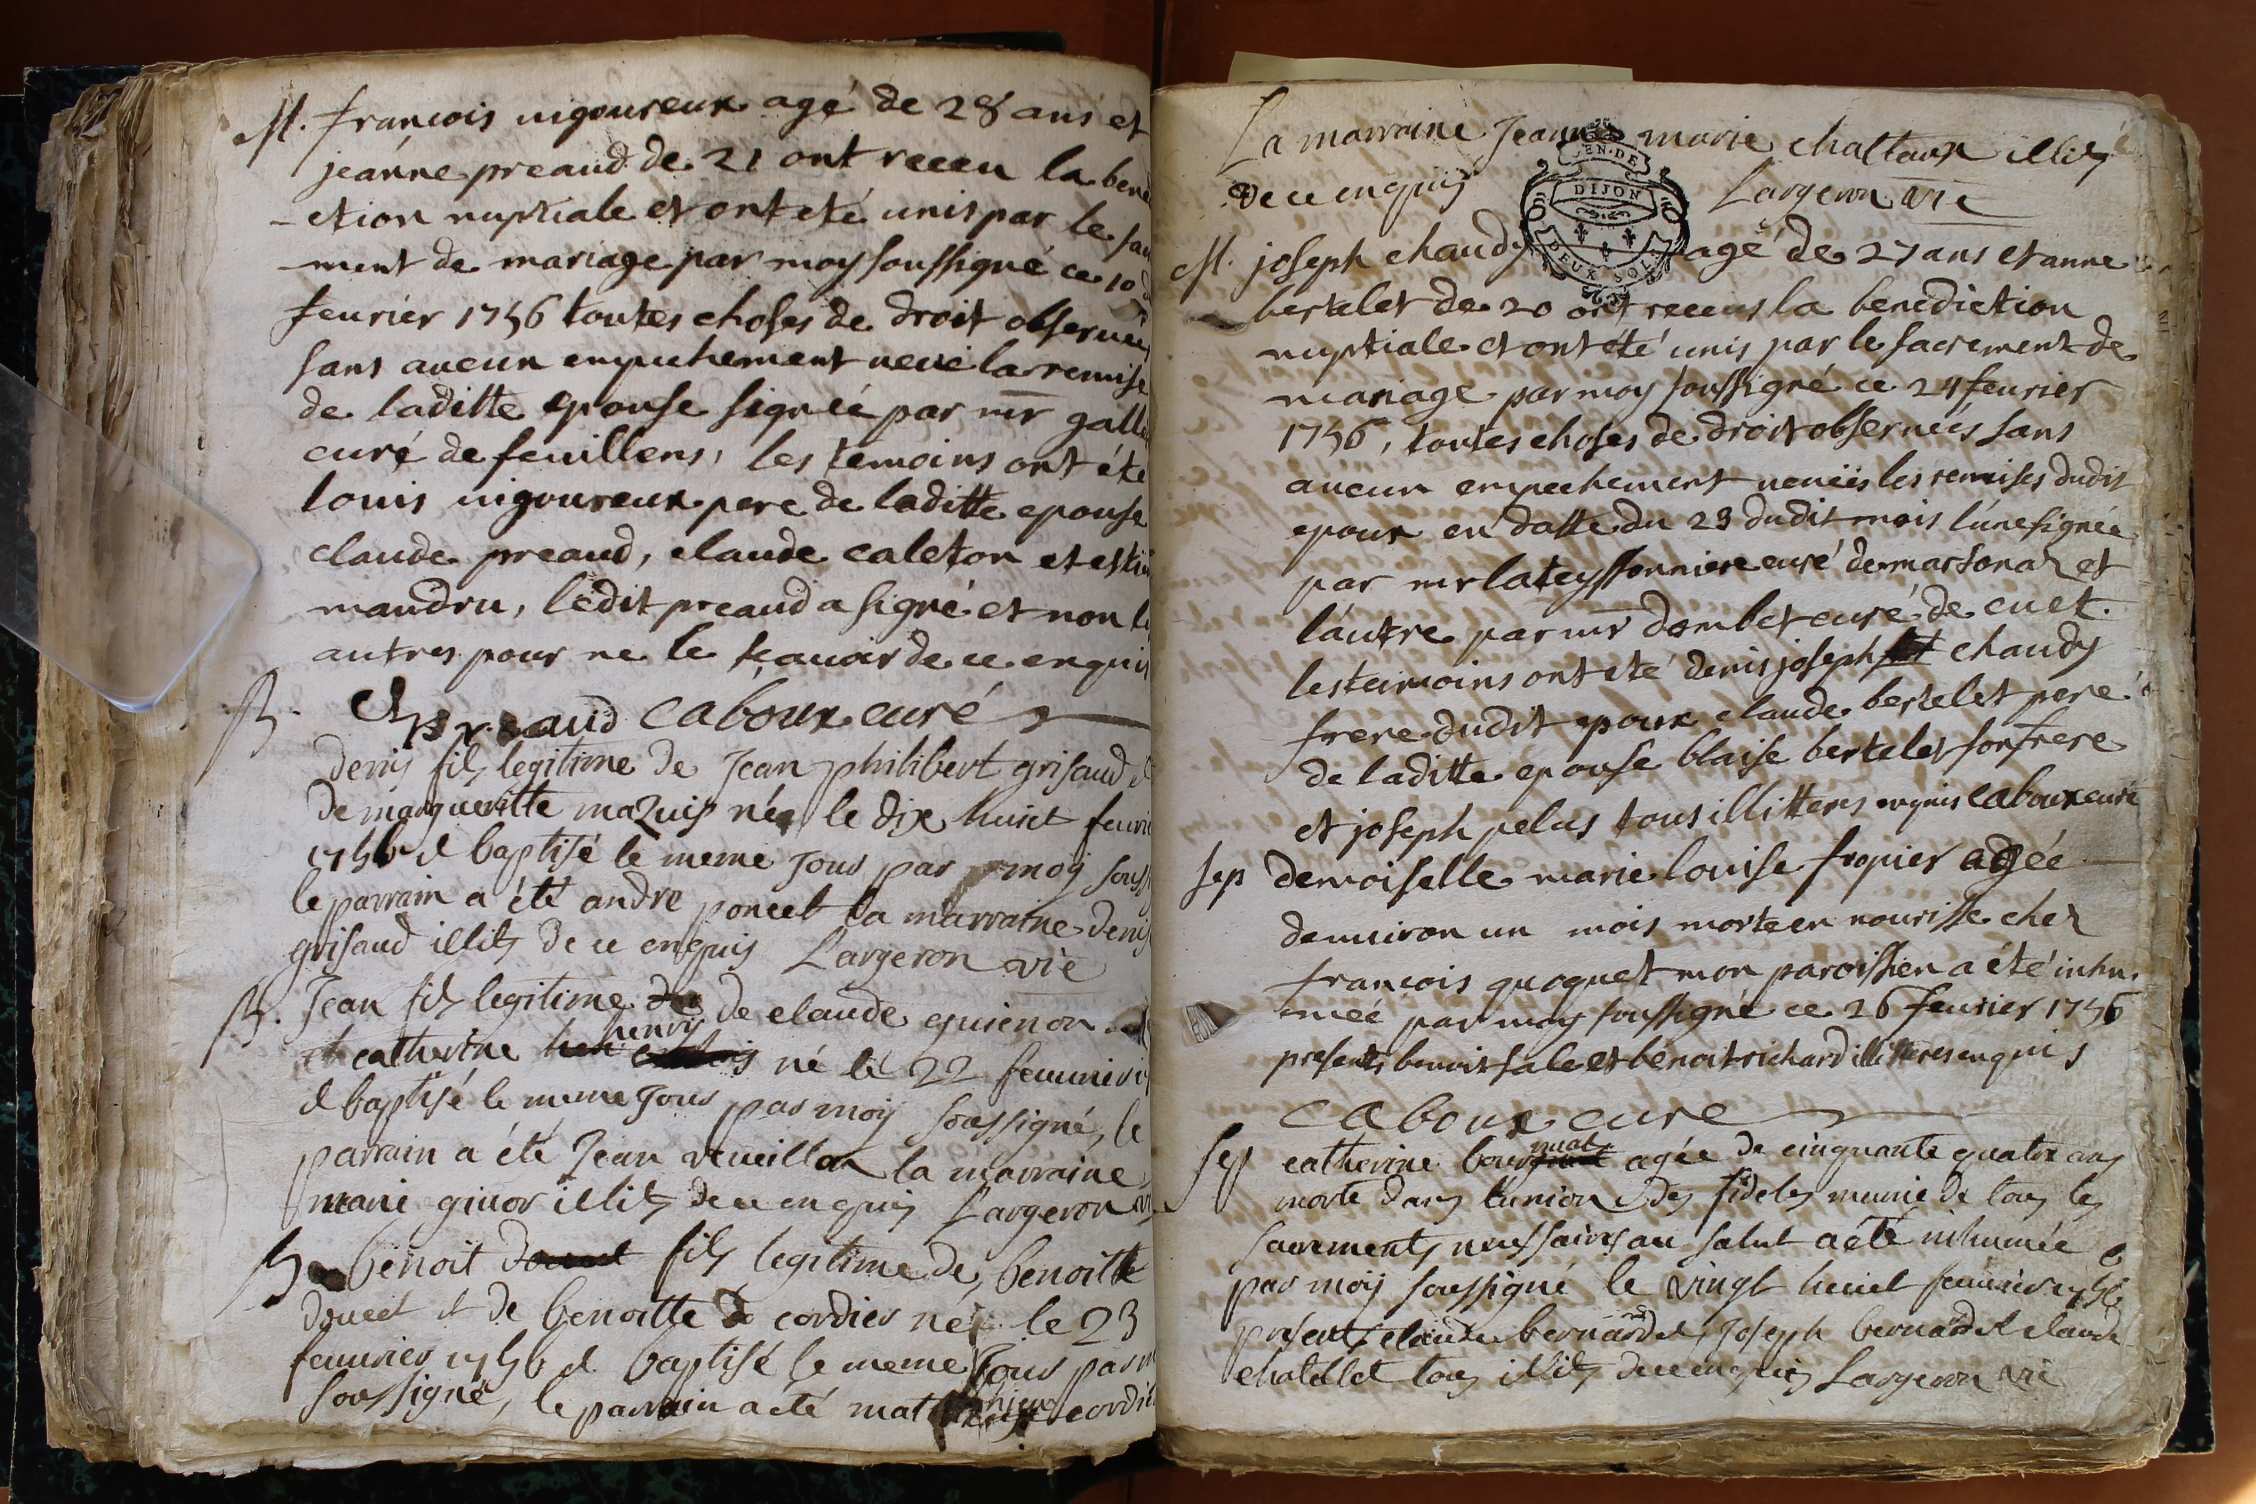 M. françois uigoureux agé de 28 ans et
jeanne preaud de 21 ont receu la bene
-ction nuptiale et ont eté unis par le sac
-ment de mariage par moy soussigné ce 10 d
feurier 1756 toutes choses de droit obseruées
sans aucun empechement ueue la remise
de laditte epouse signée par mr galle
curé de feuillens, les temoins ont été
louis uigoureux pere de laditte epouse
claude preaud, claude caleton et estie
mandru, ledit preaud a signé et non le
autres pour ne le sçauoir de ce enquis
preaud caboux curé
B. denis fils legitime de Jean philibert grisaud et
de margueritte mazuis né le dix huict feurie
1756 et baptisé le meme Jour par moy souss
le parrain a été andre poncet la marraine denis
grisaud illits de ce enquis Largeron vic
B. Jean fils legitime de claude guienon
et catherine henry né le 22 feuurier
et baptisé le meme Jour par moy soussigné, le
parrain a été Jean reueillon la marraine
marie giuor illits de ce enquis Largeron vi
B benoit fils legitime de benoitte
doucet et de benoitte cordier né le 23
feuurier 1756 et baptisé le meme Jour par m
soussigné, le parrain a été mathieu cordie
La marraine Jeanne marie chattaux illits
de ce enquis Largeron vic
GEN. DE
DIJON
DEUX SOLS
M. joseph chaudy agé de 27 ans et anne
bertelet de 20 ont receus la benediction
nuptiale et ont été unis par le sacrement de
mariage par moy soussigné ce 24 feurier
1756, toutes choses de droit obseruées sans
aucun empechement ueuës les remises dudit
epoux en datte du 23 dudit mois l'une signée
par mr lateyssonniere curé de marsonaz et
l'autre par mr dombet curé de cuet.
les temoins ont eté denis joseph chaudy
frere dudit epoux claude bertelet pere
de laditte epouse blaise bertelet son frere
et joseph pelus tous illitteres enquis caboux curé
sep demoiselle marie louise fropier agée
denuiron un mois morte en nourisse chez
françois quoquet mon paroissien a été inhu-
mée par moy soussigné ce 26 feurier 1756
presents benoit sale et benoit richard illitteres enquis
caboux curé
sep catherine agée de cinquante quatre ans
morte dans l'union des fideles munie de tous les
sacrements necessaires au salut a eté inhumée
par moy soussigné le vingt huict feuurier 1756
presents claude bernard, Joseph bernard et claude
chatellet tous illits de ce enquis Largeron vic